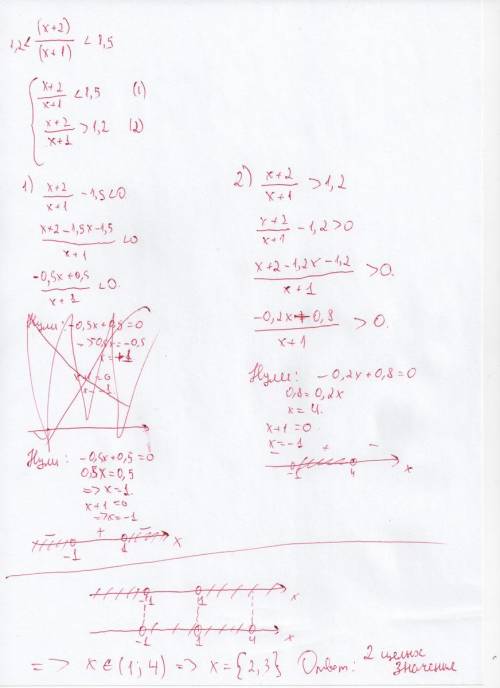 1,2 < (x+2)/(x+1) < 1,5
{ (x+2)/(x+1) < 1,5 (1)
(x+2)/(x+1) > 1,2 (2)
1) (x+2)/(x+1) - 1,5 < 0
(x+2-1,5x-1,5)/(x+1) < 0
(-0,5x+0,5)/(x+1) < 0.
Нули: -0,5x+0,5=0
x+1=0
x=-1
Нули: -0,5x+0,5=0
0,5x=0,5
=> x=1.
x+1=0
=> x=-1
- + -
-1 1 x
2) (x+2)/(x+1) > 1,2
(x+2)/(x+1) - 1,2 > 0
(x+2-1,2x-1,2)/(x+1) > 0.
(-0,2x+0,8)/(x+1) > 0.
Нули: -0,2x+0,8=0
0,8=0,2x
x=4.
x+1=0.
x=-1
- + -
-1 4 x
-1 1 x
-1 1 4 x
=> x∈(1;4) => x={2,3} Ответ: 2 целых значения